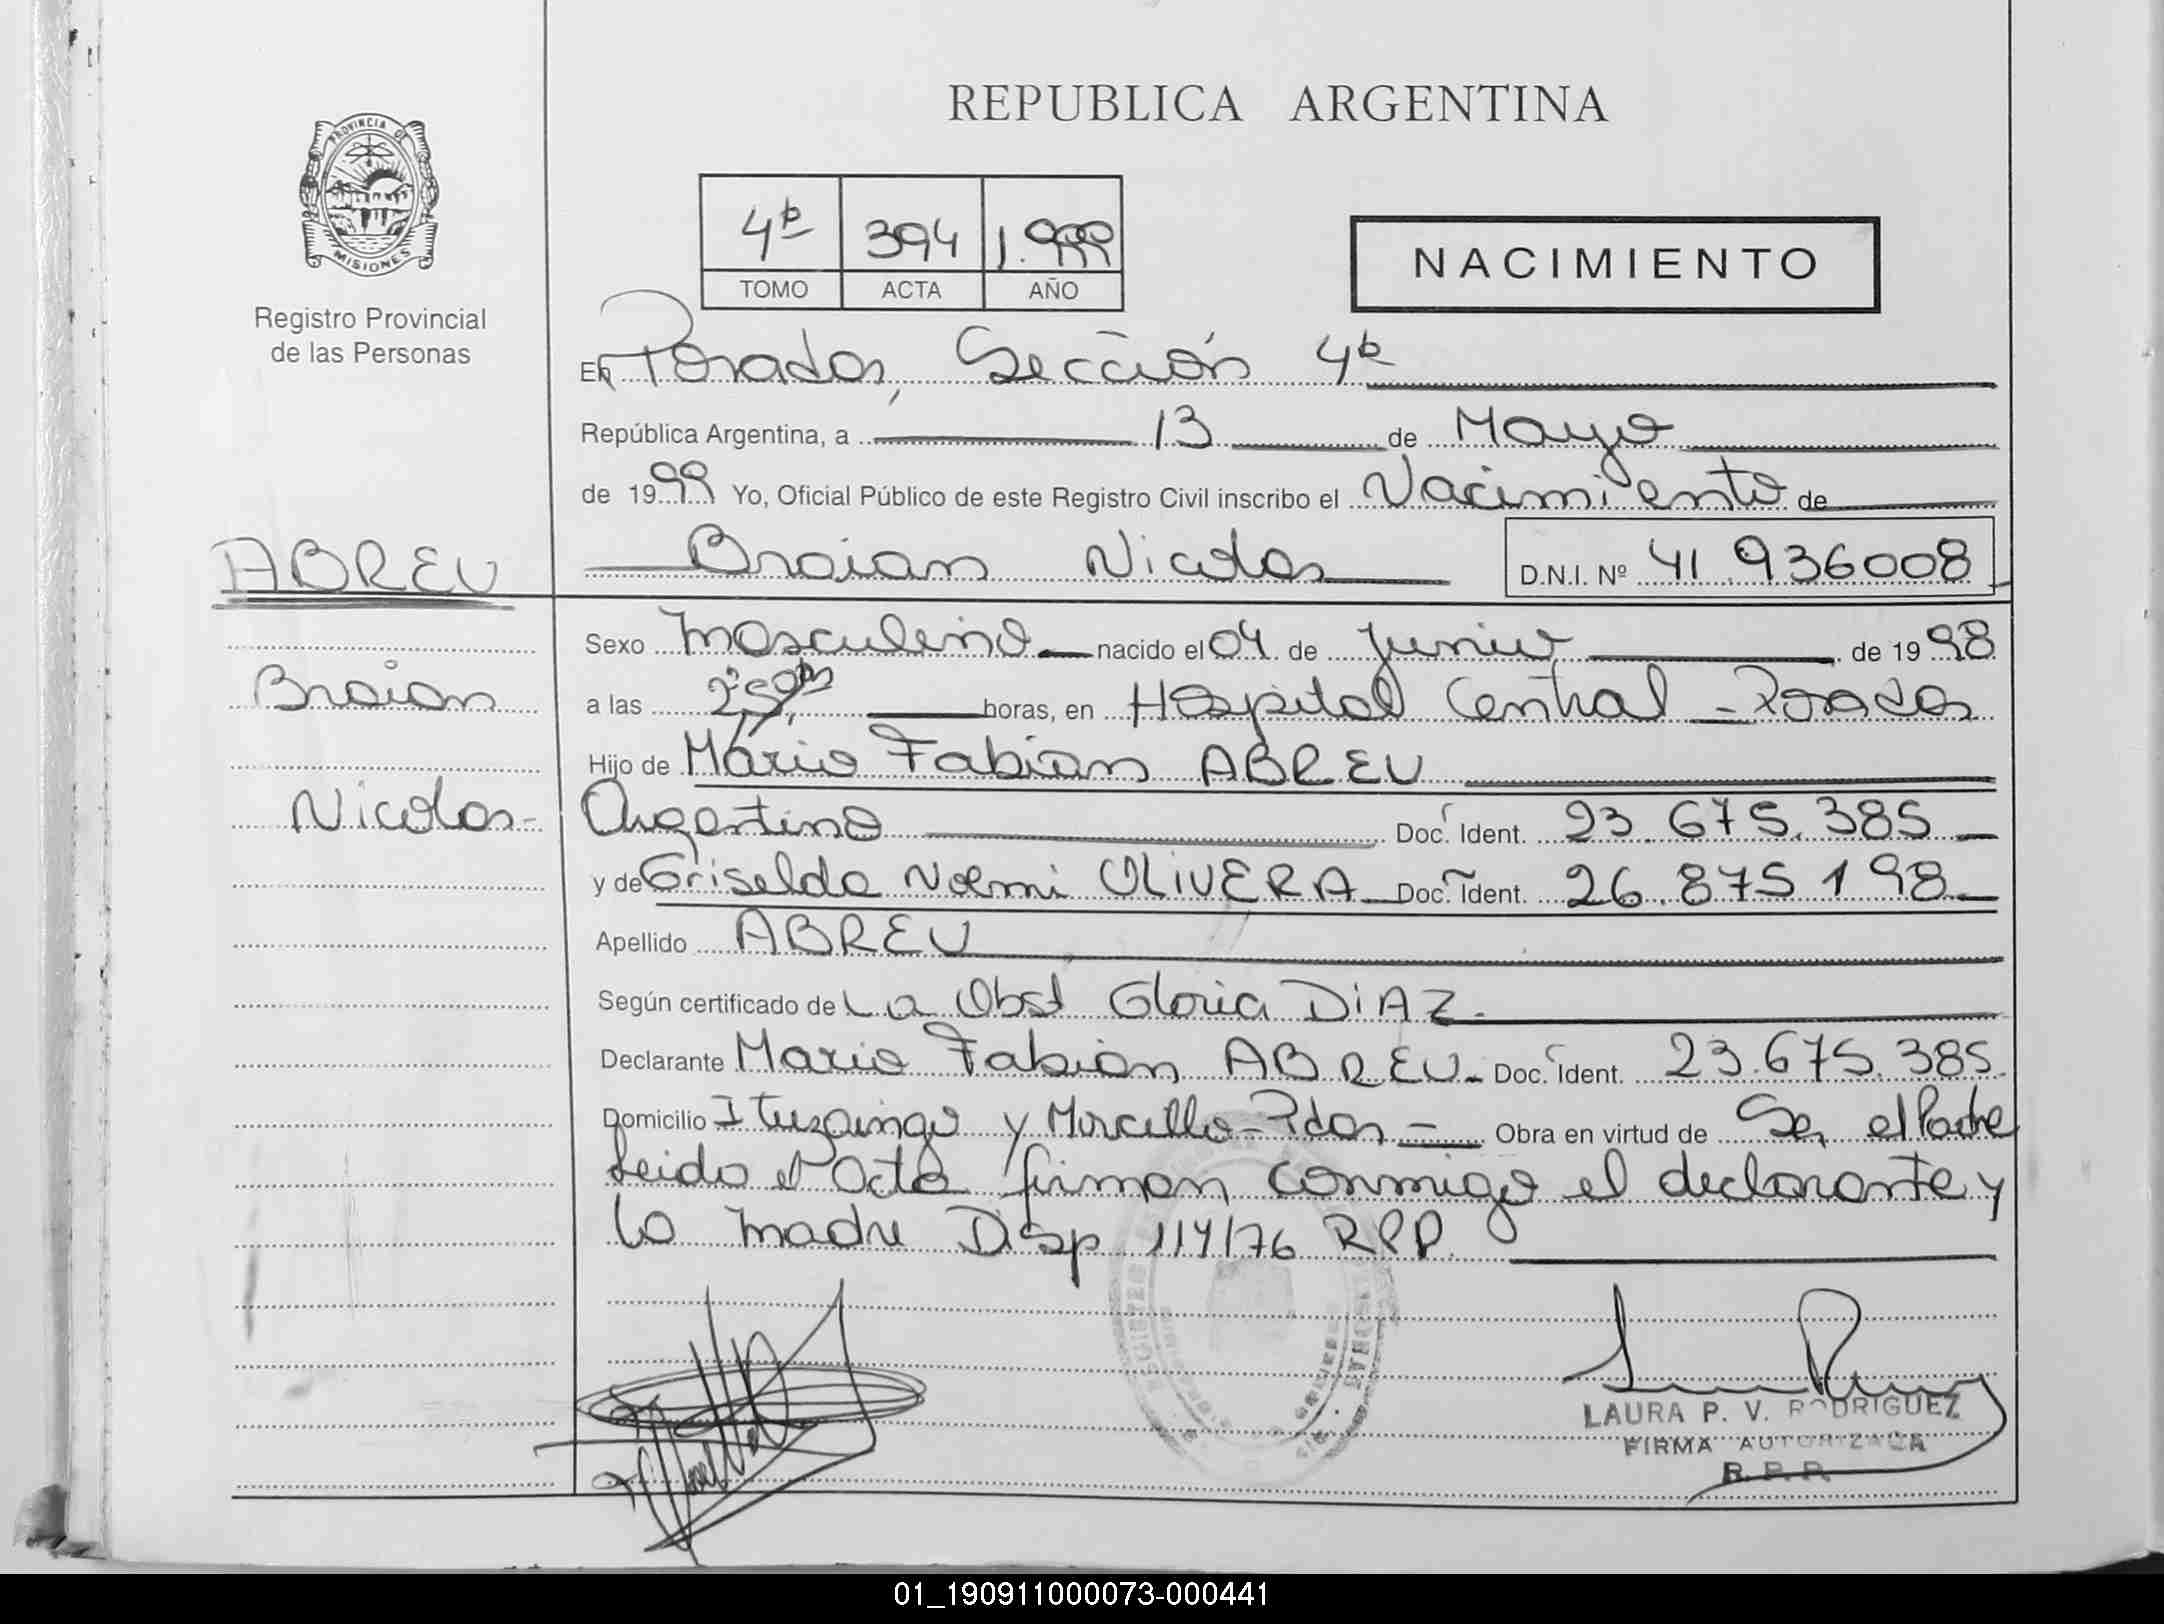 PROVINCIA DE
MISIONES
Registro Provincial
de las Personas
REPUBLICA ARGENTINA
4ta 394 1.999
TOMO ACTA AÑO
NACIMIENTO
En Posadas, Sección 4ta
República Argentina, a 13 de Mayo
de 1999 Yo, Oficial Público de este Registro Civil inscribo el Nacimiento de
Braian Nicolas D.N.I. Nº 41.936008
ABREU
Braian
Nicolas-
Sexo Masculino nacido el 04 de Junio de 1998
a las horas, en Hospital Central - Posadas
Hijo de Mario Fabian ABREU
Argentino Doc. Ident. 23.675.385
y de Griselda Noemi OLIVERA Doc. Ident. 26.875.198
Apellido ABREU
Según certificado de La Obst Gloria DIAZ.
Declarante Mario Fabian ABREU. Doc. Ident. 23.675.385.
Domicilio Ituzaingo y Morcillo-Pdas - Obra en virtud de Ser el Padre
Leido el Acta firman conmigo el declarante y
la madre Disp 114/76 RPP.
LAURA P. V. RODRIGUEZ
FIRMA AUTORIZADA
R. P. P.
01_190911000073-000441